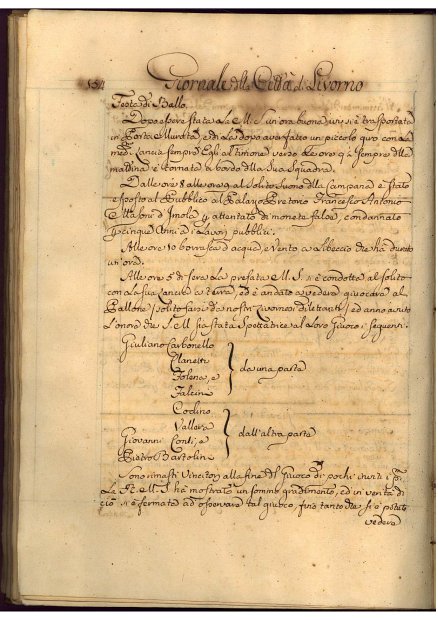 554
Giornale della Città di Livorno
Festa di Ballo.
Dopo essere stata la R. M. S. un'ora buona ivi si è trasportata
in Porta Murata, e di là dopo aver fatto un piccolo giro con la
med. Lancia sempre Egli al timone verso le ore 9 2/4 sempre della
mattina è tornata a bordo della Sua Squadra.
Dalle ore 8 alle ore 9 al solito Suono della Campana è stato
esposto al Pubblico al Palazzo Pretorio Francesco Antonio
d'Imola p attentato di monete false, condannato
p cinque Anni ai Lavori pubblici.
Alle ore 10 borrasca d'acqua, e Vento a Libeccio che ha durato
un'ora.
Alle ore 5 di sera La prefata R. M. S. si è condotta al solito
con La sua Lancia a terra, ed è andata a vedere giuocare al
Pallone (solito farsi da nostri Livornesi dilettanti) ed anno avuto
L'onore che S. M. sia stata Spettatrice al Loro Giuoco i seguenti.
Giuliano Carbonello
Planetti
Folena e
Falcini
da una parte
Codino
Vallera
Giovanni Conti, e
Pietro Bartolini
dall'altra parte
Sono rimasti Vincitori alla fine del Giuoco di pochi punti i
La R. M. S. ha mostrato un sommo gradimento, ed in verità di
ciò si è fermata ad osservare tal giuoco, fino tanto che si è potuto
vedere